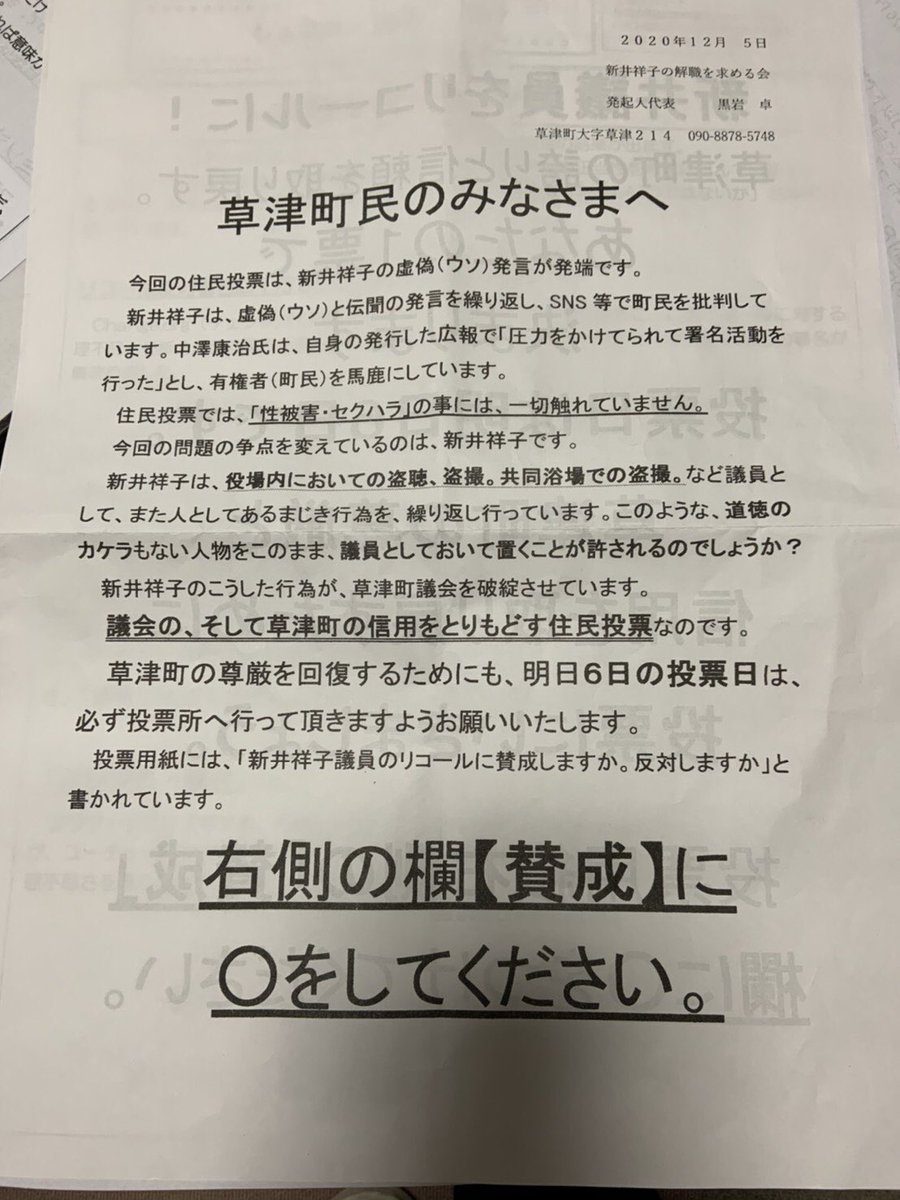 2020年12月 5日
新井祥子の解職を求める会
発起人代表 黒岩 卓
草津町大字草津214 090-8878-5748
草津町民のみなさまへ
今回の住民投票は、新井祥子の虚偽(ウソ)発言が発端です。
新井祥子は、虚偽(ウソ)と伝聞の発言を繰り返し、SNS等で町民を批判して
います。中澤康治氏は、自身の発行した広報で「圧力をかけてられて署名活動を
行った」とし、有権者(町民)を馬鹿にしています。
住民投票では、「性被害・セクハラ」の事には、一切触れていません。
今回の問題の争点を変えているのは、新井祥子です。
新井祥子は、役場内においての盗聴、盗撮。共同浴場での盗撮。など議員と
して、また人としてあるまじき行為を、繰り返し行っています。このような、道徳の
カケラもない人物をこのまま、議員としておいて置くことが許されるのでしょうか?
新井祥子のこうした行為が、草津町議会を破綻させています。
議会の、そして草津町の信用をとりもどす住民投票なのです。
草津町の尊厳を回復するためにも、明日6日の投票日は、
必ず投票所へ行って頂きますようお願いいたします。
投票用紙には、「新井祥子議員のリコールに賛成しますか。反対しますか」と
書かれています。
右側の欄【賛成】に
〇をしてください。